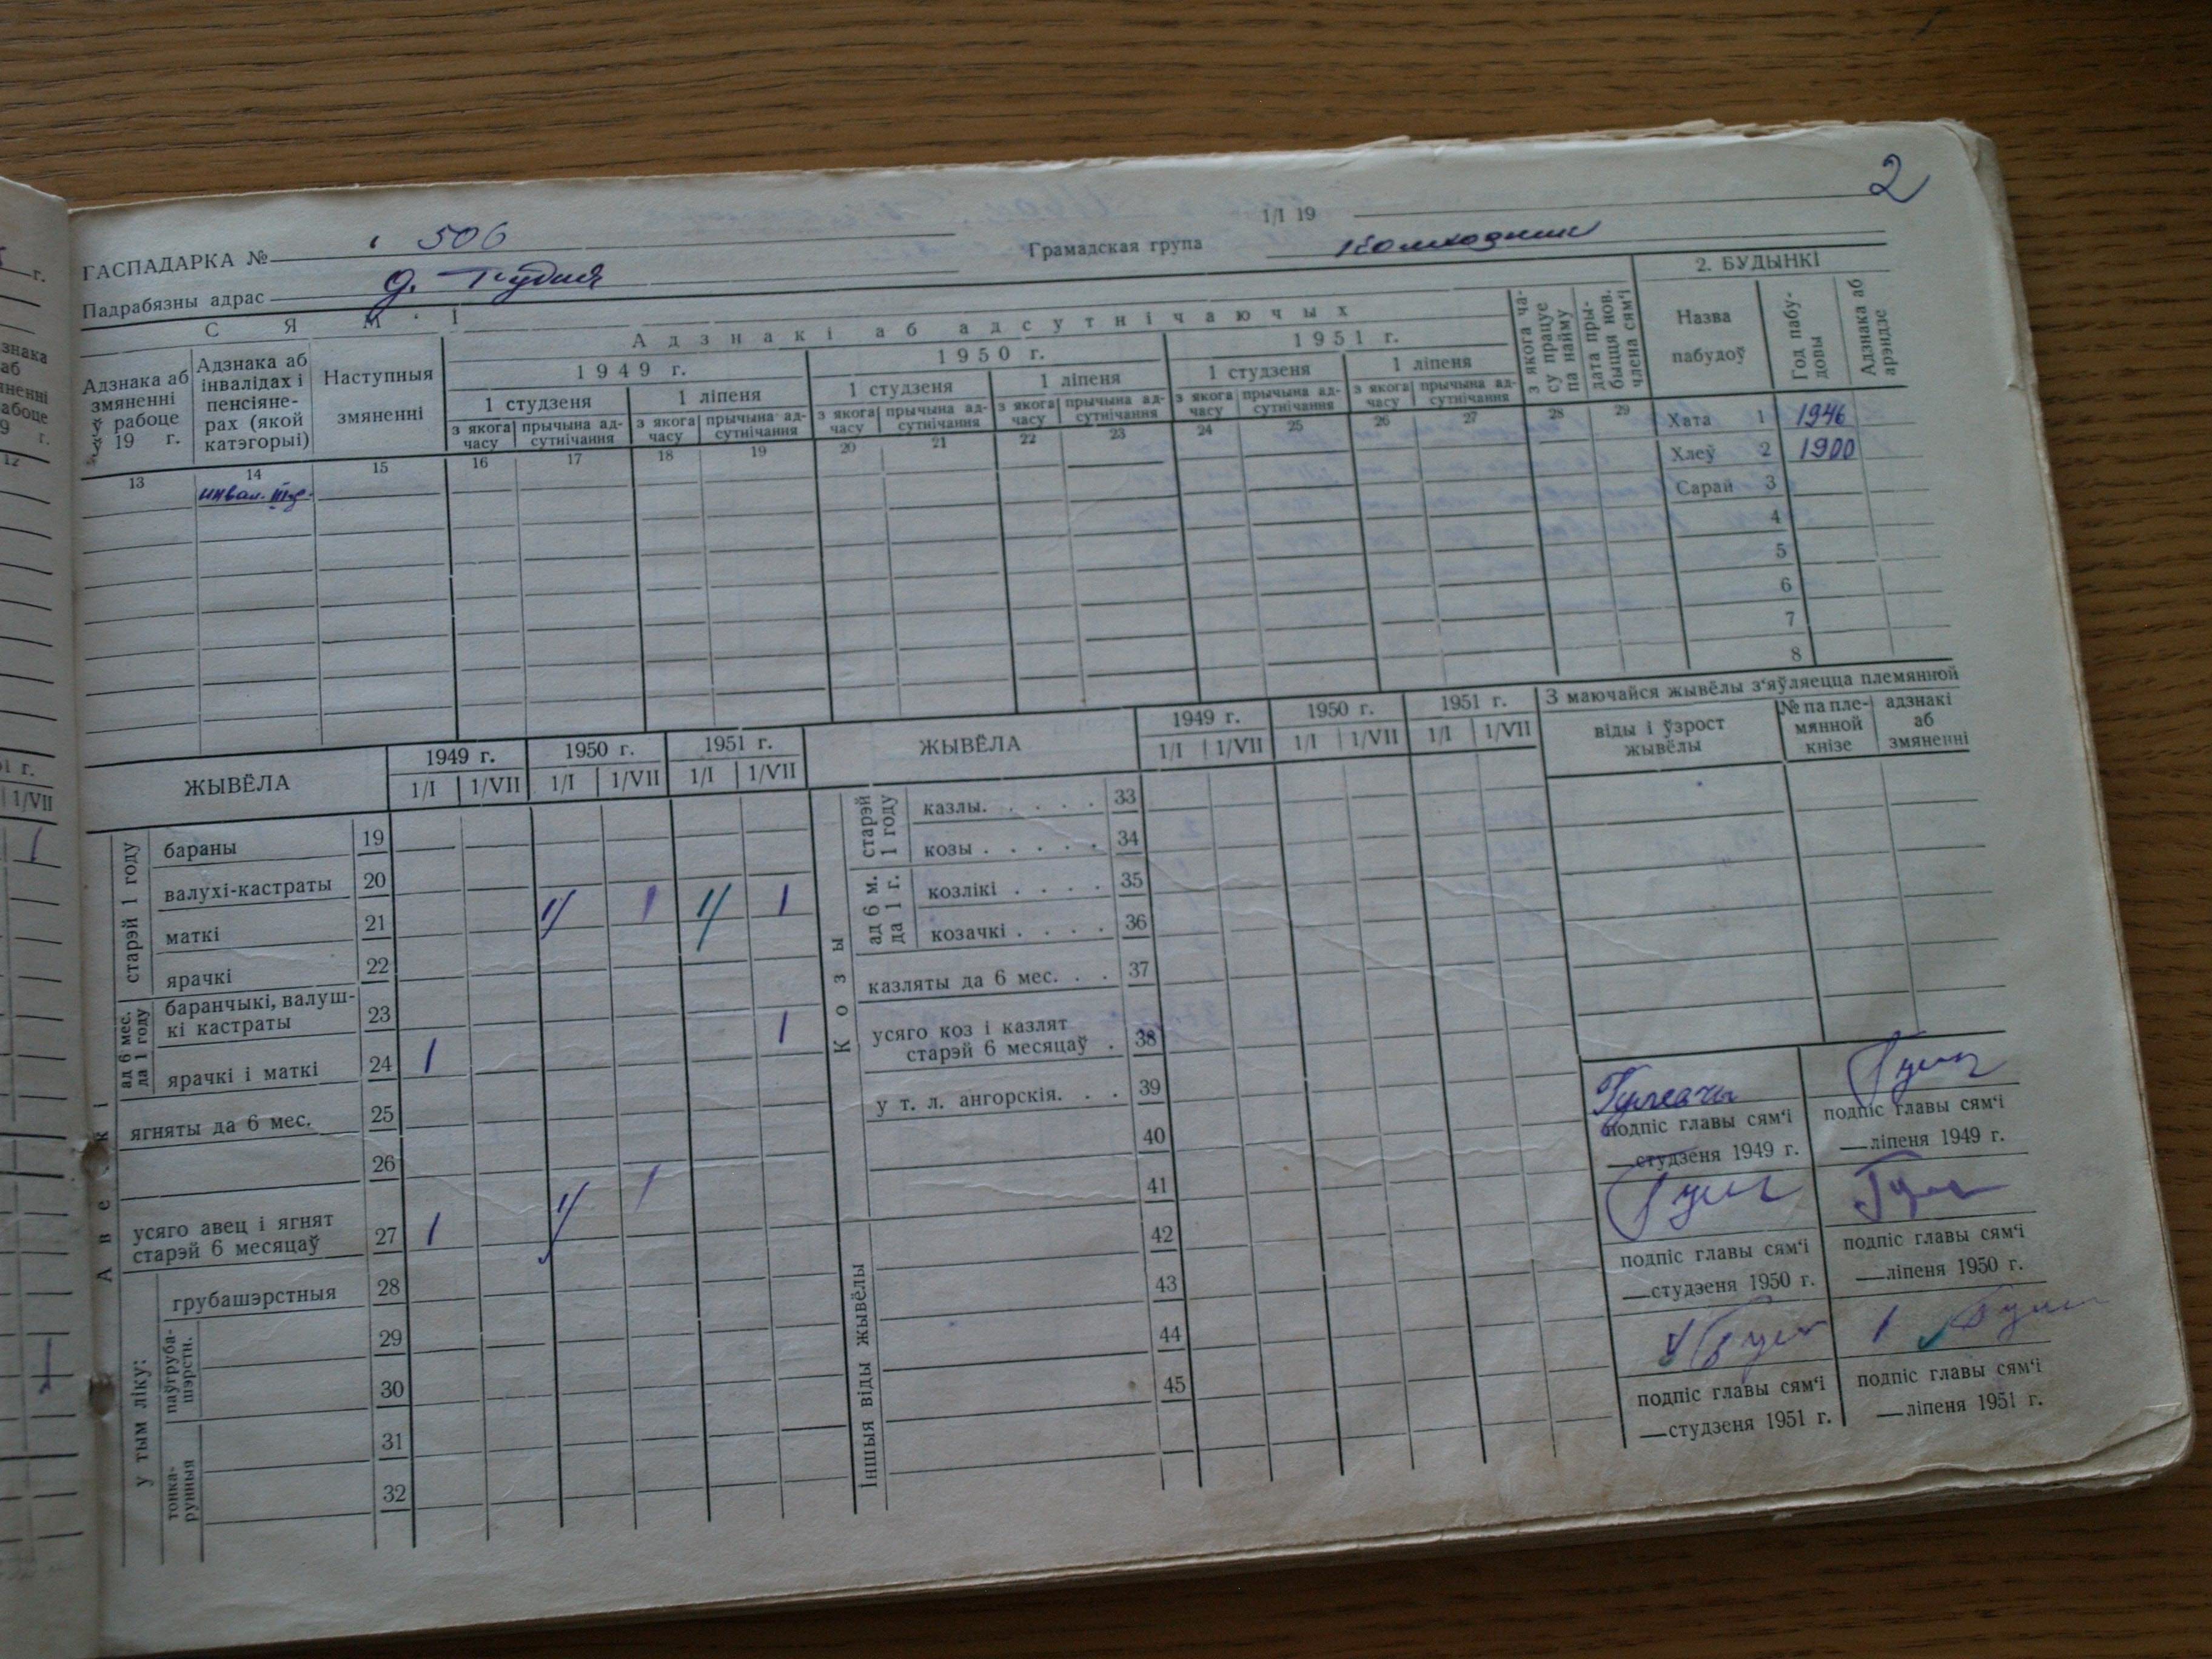 2
ГАСПАДАРКА № 506
1/I 19
Падрабязны адрас д.
Грамадская група колхозник
С Я М ' І
Адзнакі аб адсутнічаючых
2. БУДЫНКІ
1949 г. 1950 г. 1951 г.
1 студзеня 1 ліпеня 1 студзеня 1 ліпеня 1 студзеня 1 ліпеня
Адзнака аб змяненні ў рабоце ў 19 г.
Адзнака аб інвалідах і пенсіянерах (якой катэгорыі)
Наступныя змяненні
з якога часу прычына адсутнічання з якога часу прычына адсутнічання з якога часу прычына адсутнічання з якога часу прычына адсутнічання з якога часу прычына адсутнічання з якога часу прычына адсутнічання
з якога часу працуе па найму
дата прыбыцця нов. члена сям'і
Назва пабудоў
Год пабудовы
Адзнака аб арэндзе
13 14 15 16 17 18 19 20 21 22 23 24 25 26 27 28 29
инвал. III гр.
Хата 1 1946
Хлеў 2 1900
Сарай 3
4
5
6
7
8
ЖЫВЁЛА 1949 г. 1950 г. 1951 г.
1/I 1/VII 1/I 1/VII 1/I 1/VII
Авечкі
старэй 1 году
бараны 19
валухі-кастраты 20
маткі 21 1 1 1 1
ярачкі 22
ад 6 мес. да 1 году
баранчыкі, валушкі кастраты 23
ярачкі і маткі 24 1 1
ягняты да 6 мес. 25
26
усяго авец і ягнят старэй 6 месяцаў 27 1 1 1
у тым ліку:
грубашэрстныя 28
паўгрубашэрстн. 29
30
тонкарунныя 31
32
ЖЫВЁЛА 1949 г. 1950 г. 1951 г.
1/I 1/VII 1/I 1/VII 1/I 1/VII
Козы
старэй 1 году
казлы. . . . . 33
козы . . . . . 34
ад 6 м. да 1 г.
козлікі . . . . 35
козачкі . . . . 36
казляты да 6 мес. . . 37
усяго коз і казлят старэй 6 месяцаў . 38
у т. л. ангорскія. . . 39
40
41
Іншыя віды жывёлы
42
43
44
45
З маючайся жывёлы з'яўляецца племянной
віды і ўзрост жывёлы
№ па племянной кнізе
адзнакі аб змяненні
подпіс главы сям'і
—студзеня 1949 г.
подпіс главы сям'і
—ліпеня 1949 г.
подпіс главы сям'і
—студзеня 1950 г.
подпіс главы сям'і
—ліпеня 1950 г.
подпіс главы сям'і
—студзеня 1951 г.
подпіс главы сям'і
—ліпеня 1951 г.